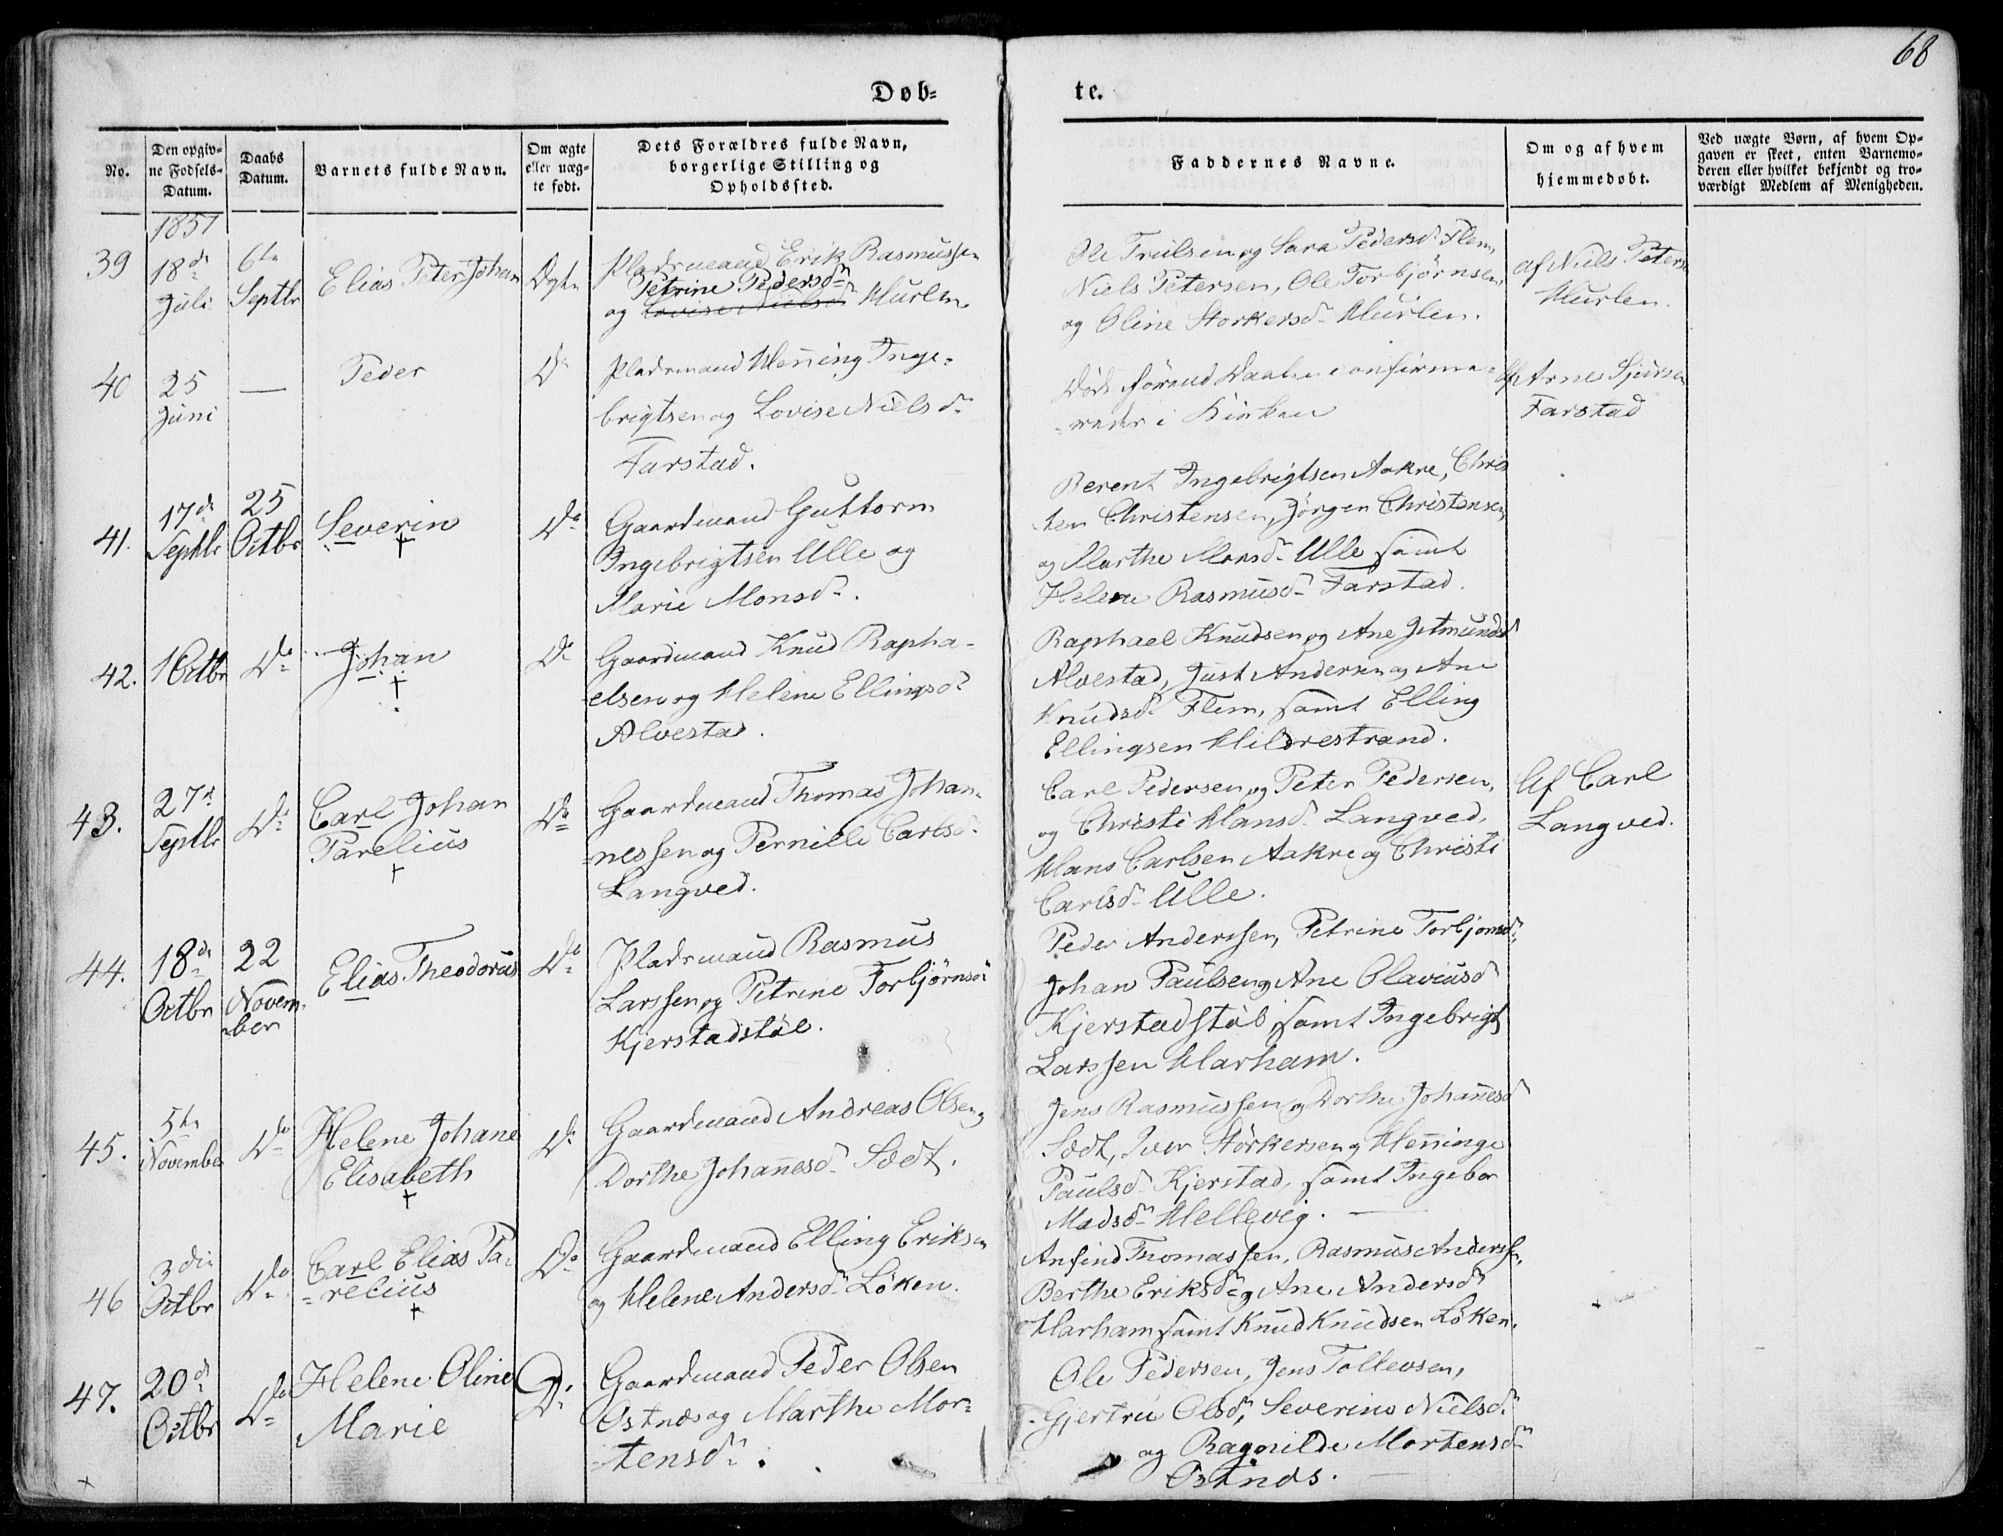 68
Døb-
te.
No.
Den opgiv-
ne Fødsels-
Datum.
Daabs
Datum.
Barnets fulde Navn.
Om ægte
eller uæg-
te født.
Dets Forældres fulde Navn,
borgerlige Stilling og
Opholdssted.
Faddernes Navne.
Om og af hvem
hjemmedøbt.
Ved uægte Børn, af hvem Op-
gaven er skeet, enten Barnemo-
deren eller hvilket bekjendt og tro-
værdigt Medlem af Menigheden.
1857
39
18de
Juli
6te
Septbr
Elias Peter Johan
Ægte
Pladsmand Erik Rasmussen
Petrine Pedersdr
og Lovise Nielsd Hurlen
Ole Trulsen og Sara Pedersdr Flem,
Niels Petersen, Ole Torbjørnsen
og Oline Storkersdr Hurlen.
af Niels Peters
Hurlen.
40
25
Juni
—
Peder
Do
Pladsmand Henning Inge-
brigtsen og Lovise Nielsdr
Farstad.
Døde førend Daaben confirme-
redes i Kirken
Af Arne Sjursen
Farstad
41.
17de
Septbr
25
Octbr
Severin
+
Do
Gaardmand Guttorm
Ingebrigtsen Ulle og
Marie Monsdr.
Berent Ingebrigtsen Aakre, Chris
ten Christensen, Jørgen Christensen,
og Marthe Monsdr Ulle samt
Helene Rasmusdr Farstad.
42.
1 Octbr
Do
Johan
+
Do
Gaardmand Knud Rapha-
elsen og Helene Ellingsdr
Alvestad.
Raphael Knudsen og Ane Jetmundsd
Alvestad, Just Andersen og Ane
Knudsdr Flem, samt Elling
Ellingsen Hildrestrand.
43.
27de
Septbr
Do
Carl Johan
Parelius
+
Do
Gaardmand Thomas Johan-
nessen og Pernille Carlsdr
Langved.
Carl Pedersen og Peter Pedersen,
og Christi Hansdr Langved,
Hans Carlsen Aakre og Christi
Carlsdr Ulle.
Af Carl
Langved.
44.
18de
Octbr
22
Novem-
ber
Elias Theodorus
Do
Pladsmand Rasmus
Larssen og Petrine Torbjørnsdr
Kjerstadstøl.
Peder Anderssen, Petrine Torbjørnsdr
Johan Paulsen og Ane Olaviusd
Kjerstadstøl, samt Ingebrigt
Larssen Harham.
45.
5te
November
Do
Helene Johane
Elisabeth
+
Do
Gaardmand Andreas Olsen og
Dorthe Johannesdr Sædt.
Jens Rasmussen og Dorthe Johannesd
Sædt, Iver Størkersen og Henninge
Paulsdr Kjerstad, samt Ingebor
Madsdr Hellevig. —
46
3die
Octbr
Do
Carl Elias Pa-
relius
+
Do
Gaardmand Elling Eriksen
og Helene Andersdr Løken.
Anfind Thomassen, Rasmus Anderssen,
Berthe Eriksdr og Ane Andersdr
Harham samt Knud Knudsen Løken.
47.
20de
Octbr
Do
Helene Oline
Marie
Do
Gaardmand Peder Olsen
Østnæs og Marthe Mor-
tensdr.
Ole Pedersen, Jens Tollevsen,
Gjertrü Olsdr, Severine Nielsdr
og Ragnilde Mortensdr
Østnæs. —
+